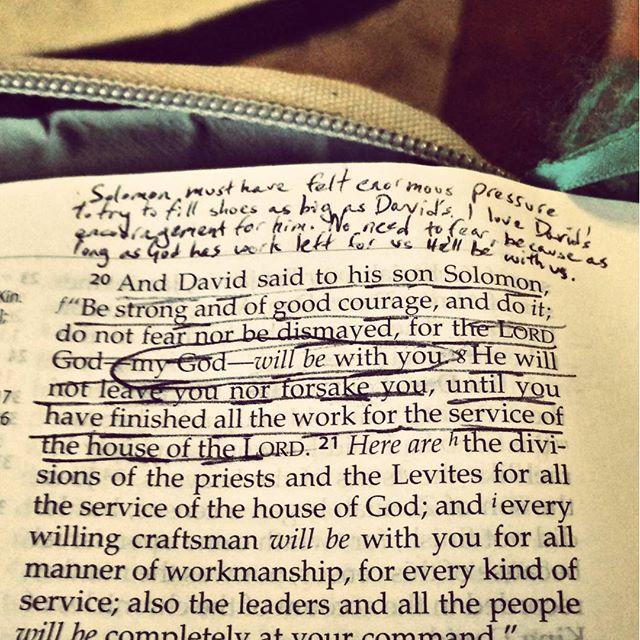 Solomon must have felt enormous pressure
to try to fill shoes as big as David's. I love David's
encouragement for him. No need to fear, because as
long as God has work left for us He'll be with us.
20 And David said to his son Solomon,
Kin. f "Be strong and of good courage, and do it;
do not fear nor be dismayed, for the LORD
God—my God—will be with you. g He will
7 not leave you nor forsake you, until you
6 have finished all the work for the service of
the house of the LORD. 21 Here are h the divi-
sions of the priests and the Levites for all
the service of the house of God; and i every
willing craftsman will be with you for all
manner of workmanship, for every kind of
service; also the leaders and all the people
will be completely at your command."